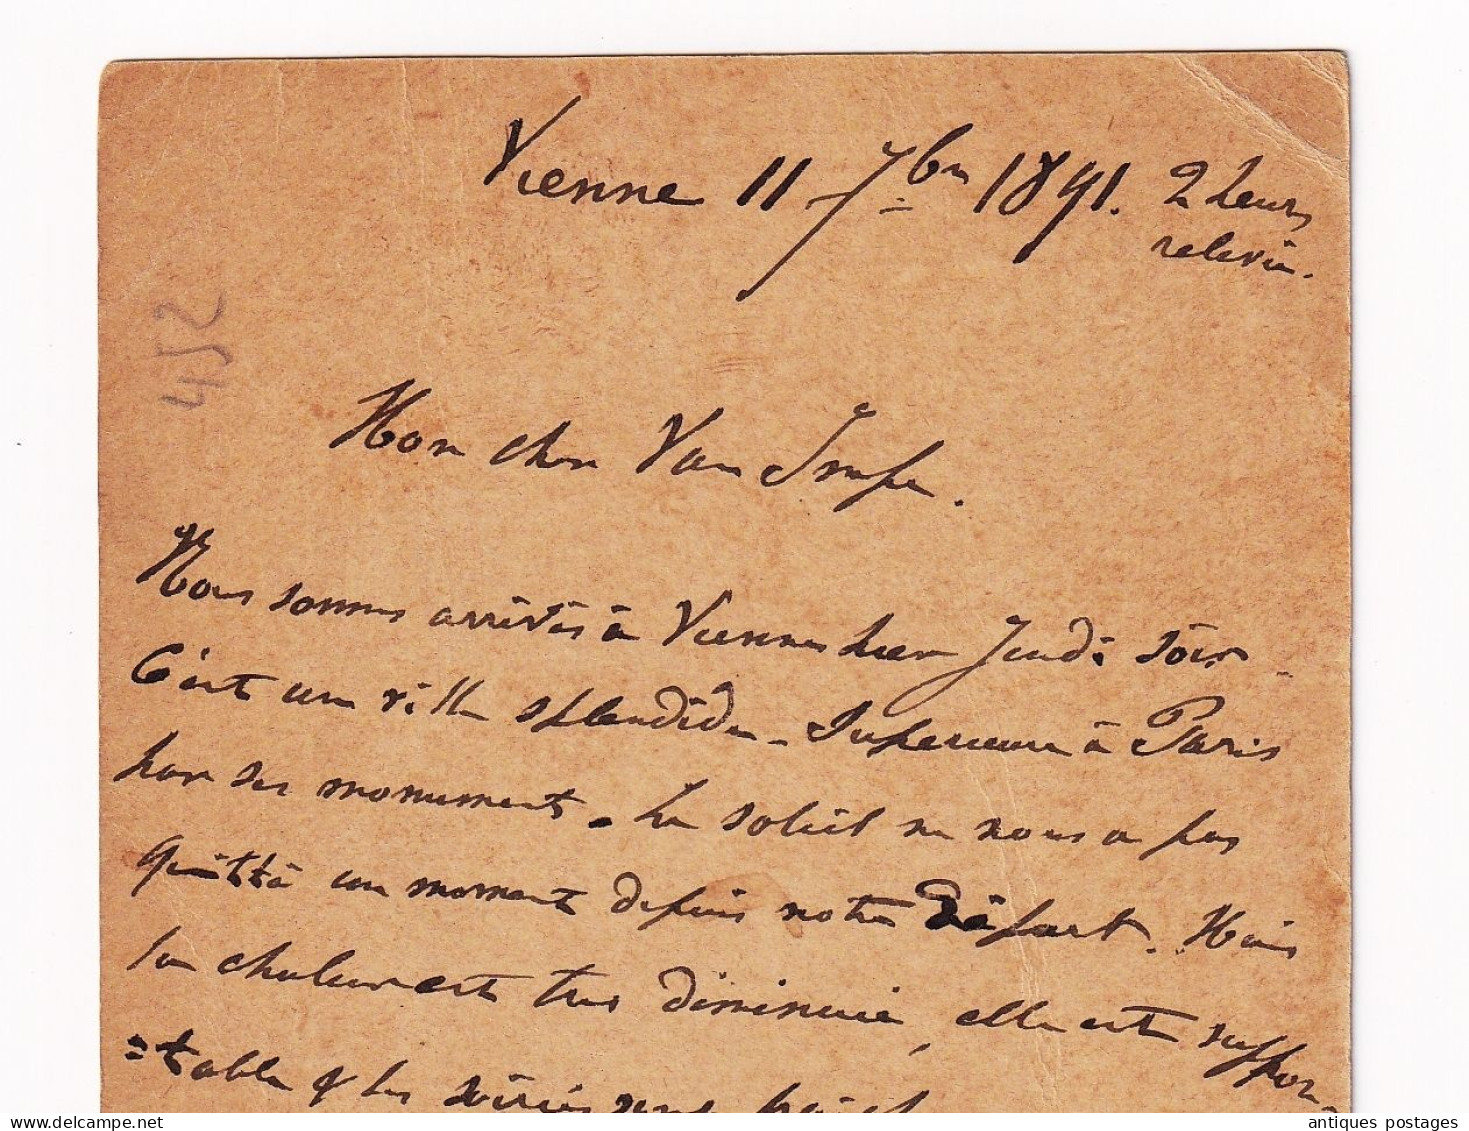 Vienne 11 7bre 1891. 2 heures
relevée.
452
Mon cher Van Impe.
Nous sommes arrivés à Vienne hier Jeudi soir
C'est une ville splendide - Supérieure à Paris
par ses monuments. Le soleil ne nous a pas
quitté un moment depuis notre départ. Mais
la chaleur est très diminuée, elle est suppor-
=table & les soirées sont
antiques postages